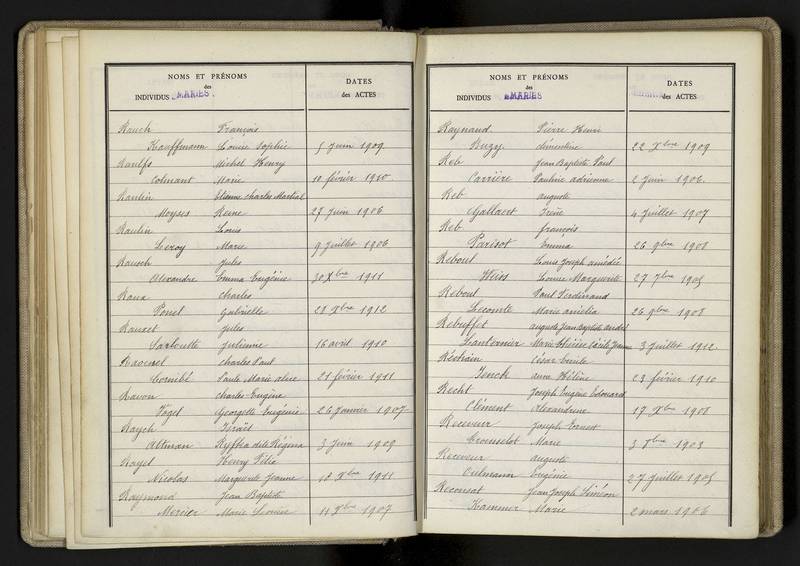 NOMS ET PRÉNOMS
des
INDIVIDUS MARIÉS.
DATES
des ACTES
Rauch François
Kauffmann Louise Sophie 5 Juin 1909
Raulfs Michel Henry
Colnant Marie 10 février 1910
Raulin Etienne Charles Martial
Moyses Reine 27 Juin 1906
Raulin Louis
Leroy Marie 9 Juillet 1906
Rausch Jules
Alexandre Emma Eugénie 30 Xbre 1911
Raux Charles
Ponel Gabrielle 28 Xbre 1912
Rauzet Jules
Sarloutte Julienne 16 avril 1910
Ravenel Charles Paul
Cornibé Paule Marie alice 21 février 1911
Ravon Charles Eugène
Vogel Georgette Eugénie 26 Janvier 1907
Raych Israël
Altman Ryfka dite Régina 3 Juin 1909
Rayel Henry Félix
Nicolas Marguerite Jeanne 18 Xbre 1911
Raymond Jean Baptiste
Mercier Marie Léonine 11 Xbre 1907
NOMS ET PRÉNOMS
des
INDIVIDUS MARIÉS
DATES
des ACTES
Raynaud Pierre Henri
Buzy clémentine 22 Xbre 1909
Reb Jean Baptiste Paul
Carrière Pauline adrienne 2 Juin 1906.
Reb auguste
Gallaert Irène 4 Juillet 1907
Reb françois
Parisot Emma 26 9bre 1908
Reboul Louis Joseph amédée
Weiss Louise Marguerite 27 7bre 1905
Reboul Paul Ferdinand
Lecomte Marie amélia 26 9bre 1908
Rebuffet auguste Jean Baptiste andré
Lanternier Marie Cécile Jeanne 3 Juillet 1912.
César Emile
Jenck anne Hélène 23 février 1910
Recht Joseph Eugène Edouard
Clément Alexandrine 17 Xbre 1908
Receveur Joseph Ernest
Crousselot Marie 3 1903
Receveur auguste
Culmann Eugénie 27 Juillet 1905
Reconsat Jean Joseph Siméon
Hammer Marie 2 mars 1906